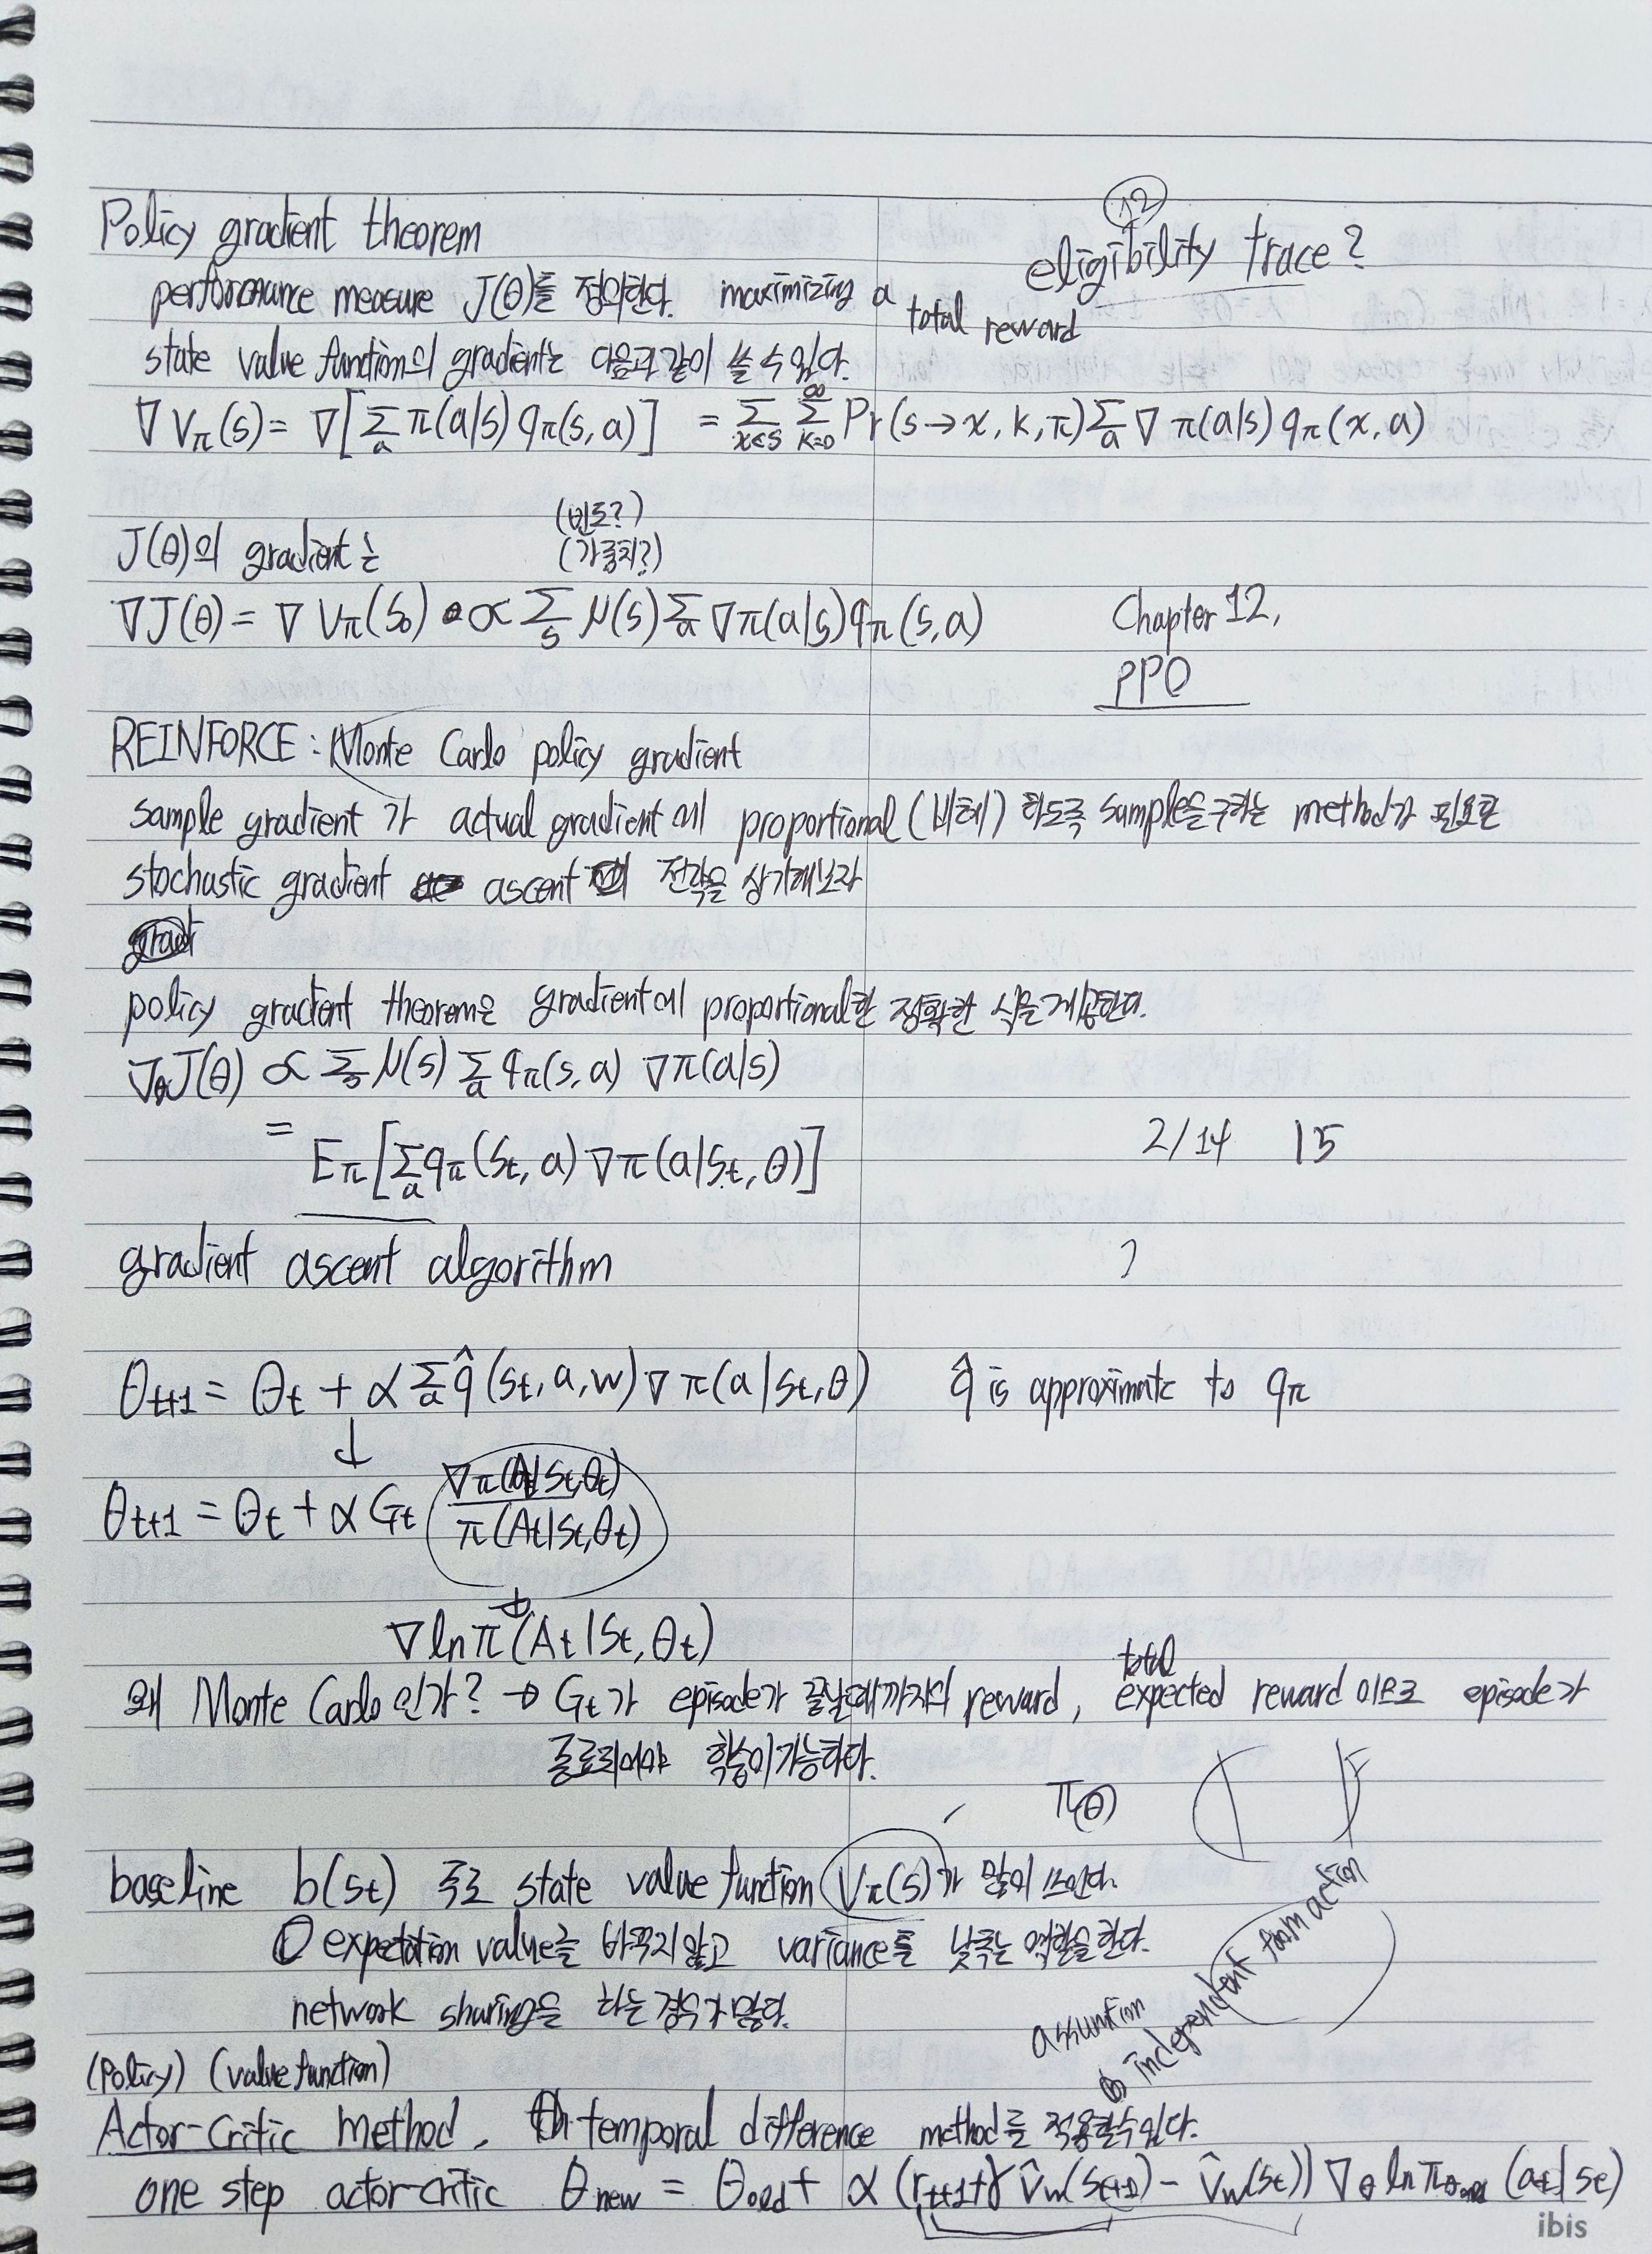 Policy gradient theorem
12
eligibility trace?
performance measure J(θ)를 정의한다. maximizing a total reward
state value function의 gradient는 다음과 같이 쓸 수 있다.
∇Vπ(s) = ∇[Σa π(a|s) qπ(s,a)] = Σx∈S Σk=0^∞ Pr(s→x, k, π) Σa ∇π(a|s) qπ(x,a)
(빈도?)
J(θ)의 gradient는 (가중치?)
∇J(θ) = ∇Vπ(S₀) ∝ Σs μ(s) Σa ∇π(a|s) qπ(s,a)
Chapter 12,
PPO
REINFORCE : Monte Carlo policy gradient
sample gradient가 actual gradient에 proportional(비례) 하도록 sample을 구하는 method가 필요한
stochastic gradient ascent 전략을 상기해보자
policy gradient theorem은 gradient에 proportional한 정확한 식을 제공한다.
∇θJ(θ) ∝ Σs μ(s) Σa qπ(s,a) ∇π(a|s)
= Eπ[Σa qπ(St,a) ∇π(a|St,θ)]
2/14 15
gradient ascent algorithm
θt+1 = θt + α Σa q̂(St,a,w) ∇π(a|St,θ) q̂ is approximate to qπ
↓
θt+1 = θt + α Gt ∇π(At|St,θt) / π(At|St,θt)
↓
∇ln π(At|St,θt)
왜 Monte Carlo 인가? → Gt가 episode가 끝날때까지의 reward, total expected reward 이므로 episode가
종료되어야 학습이 가능하다.
π(θ)
baseline b(St) 주로 state value function Vπ(s)가 많이 쓰인다.
expectation value를 바꾸지 않고 variance를 낮추는 역할을 한다.
network sharing을 하는 경우가 많다.
assumtion
b independent from action
(Policy) (value function)
Actor-Critic Method, temporal difference method를 적용할 수 있다.
one step actor-critic θnew = θold + α (rt+1 + γ v̂w(St+1) - v̂w(St)) ∇θ ln πθold (at|St)
ibis